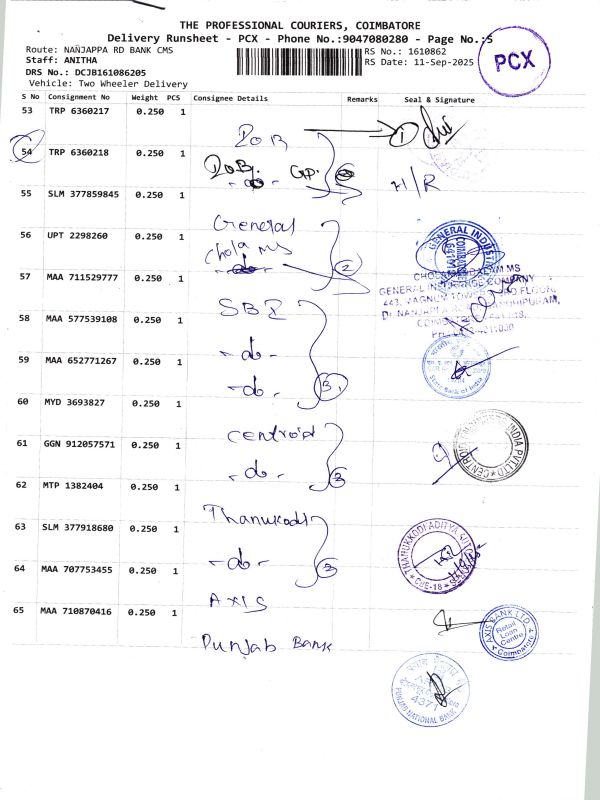 THE PROFESSIONAL COURIERS, COIMBATORE
Delivery Runsheet - PCX - Phone No.:9047080280 - Page No.:5
Route: NANJAPPA RD BANK CMS
RS No.: 1610862
Staff: ANITHA
RS Date: 11-Sep-2025
DRS No.: DCJB161086205
Vehicle: Two Wheeler Delivery
PCX
S No Consignment No Weight PCS Consignee Details Remarks Seal & Signature
53 TRP 6360217 0.250 1
BOB
54 TRP 6360218 0.250 1
BOB. GP.
-do-
55 SLM 377859845 0.250 1
General
56 UPT 2298260 0.250 1
Chola MS
-do-
2
57 MAA 711529777 0.250 1
CHOLAMANDALAM MS
GENERAL INSURANCE COMPANY
SBI
58 MAA 577539108 0.250 1
-do-
59 MAA 652771267 0.250 1
-do-
3
State Bank of India
60 MYD 3693827 0.250 1
centroid
61 GGN 912057571 0.250 1
-do-
62 MTP 1382404 0.250 1
Thanukodi
63 SLM 377918680 0.250 1
-do-
THANUKKODI ADITYA
CBE-18
64 MAA 707753455 1
0.250
AXIS
65 MAA 710870416 0.250 1
AXIS BANK LTD.
Retail
Loan
Centre
Coimbatore
Punjab Bank
4371
PUNJAB NATIONAL BANK